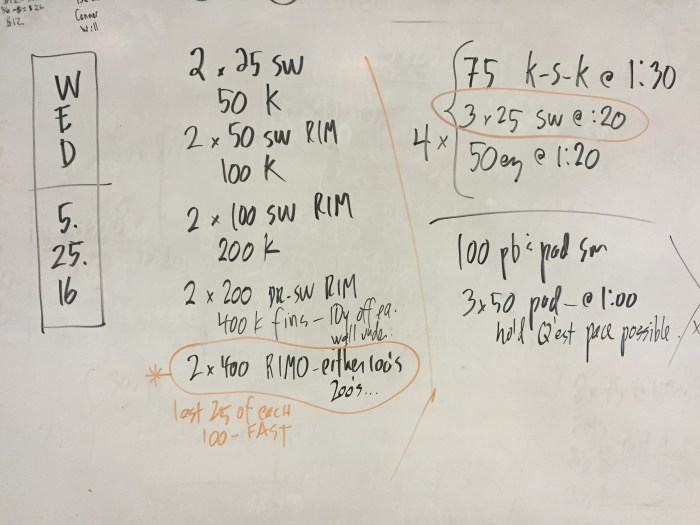 Connor
Will
$12.
WED
5.
25.
16
2 x 25 SW
50 K
2 x 50 SW RIM
100 K
2 x 100 SW RIM
200 K
2 x 200 DR-SW RIM
400 K fins - 10y off ea.
wall
* 2 x 400 RIMO - either 100's
200's...
last 25 of each
100 - FAST
4 x
75 k-s-k @ 1:30
3 x 25 SW @ :20
50 ez @ 1:20
100 pb pad sm
3x50 pad - @ 1:00
hold Q'est pace possible.